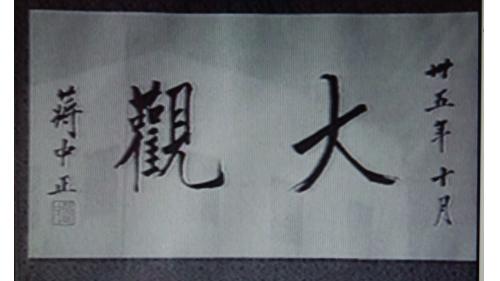 卅五年十月
大觀
蔣中正